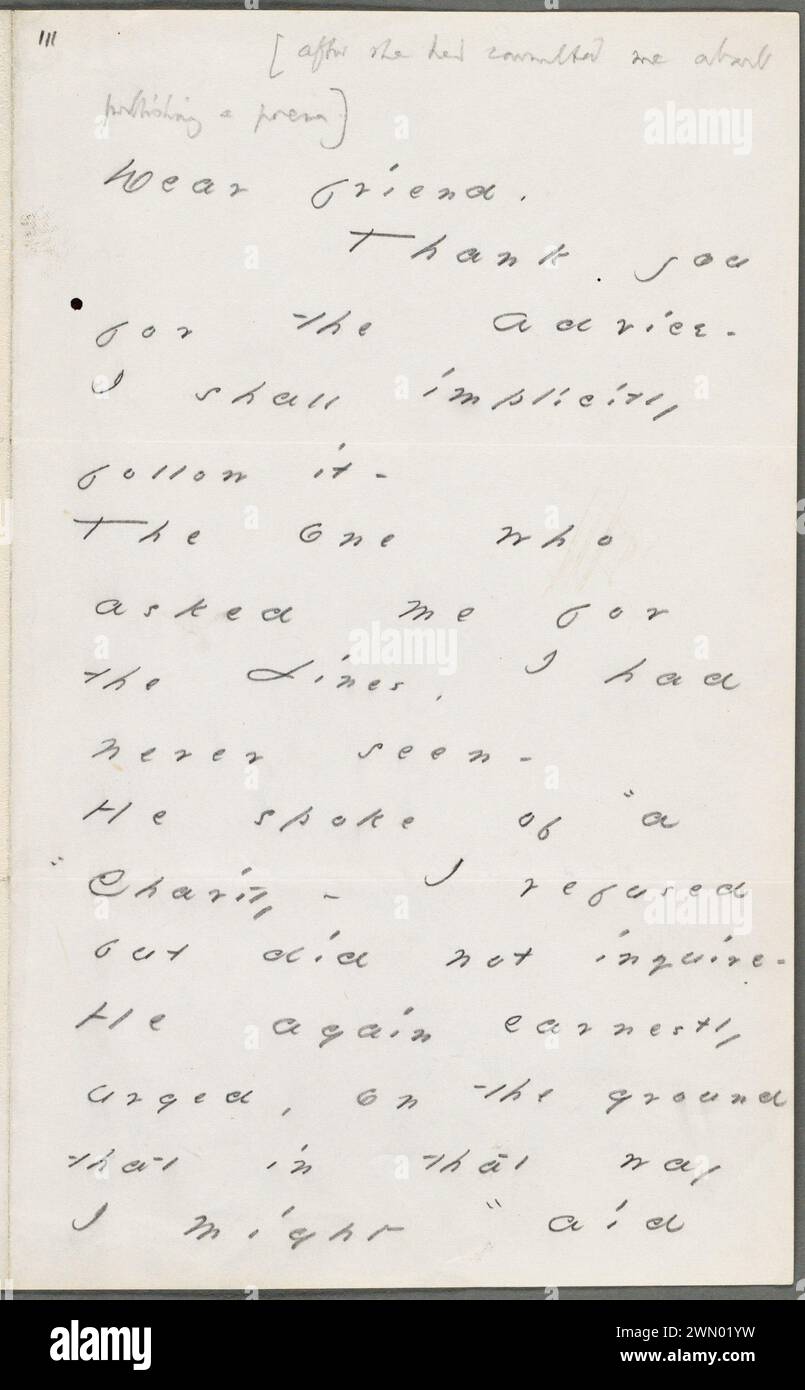 111
[after she had consulted me about
publishing a poem]
Dear friend.
Thank you
for the Advice -
I shall implicitly
follow it -
The One who
asked me for
the Lines, I had
never seen -
He spoke of "a
Charity" - I refused
but did not inquire -
He again earnestly
urged, on the ground
that in that way
I might "aid
alamy
Image ID: 2WN01YW
www.alamy.com